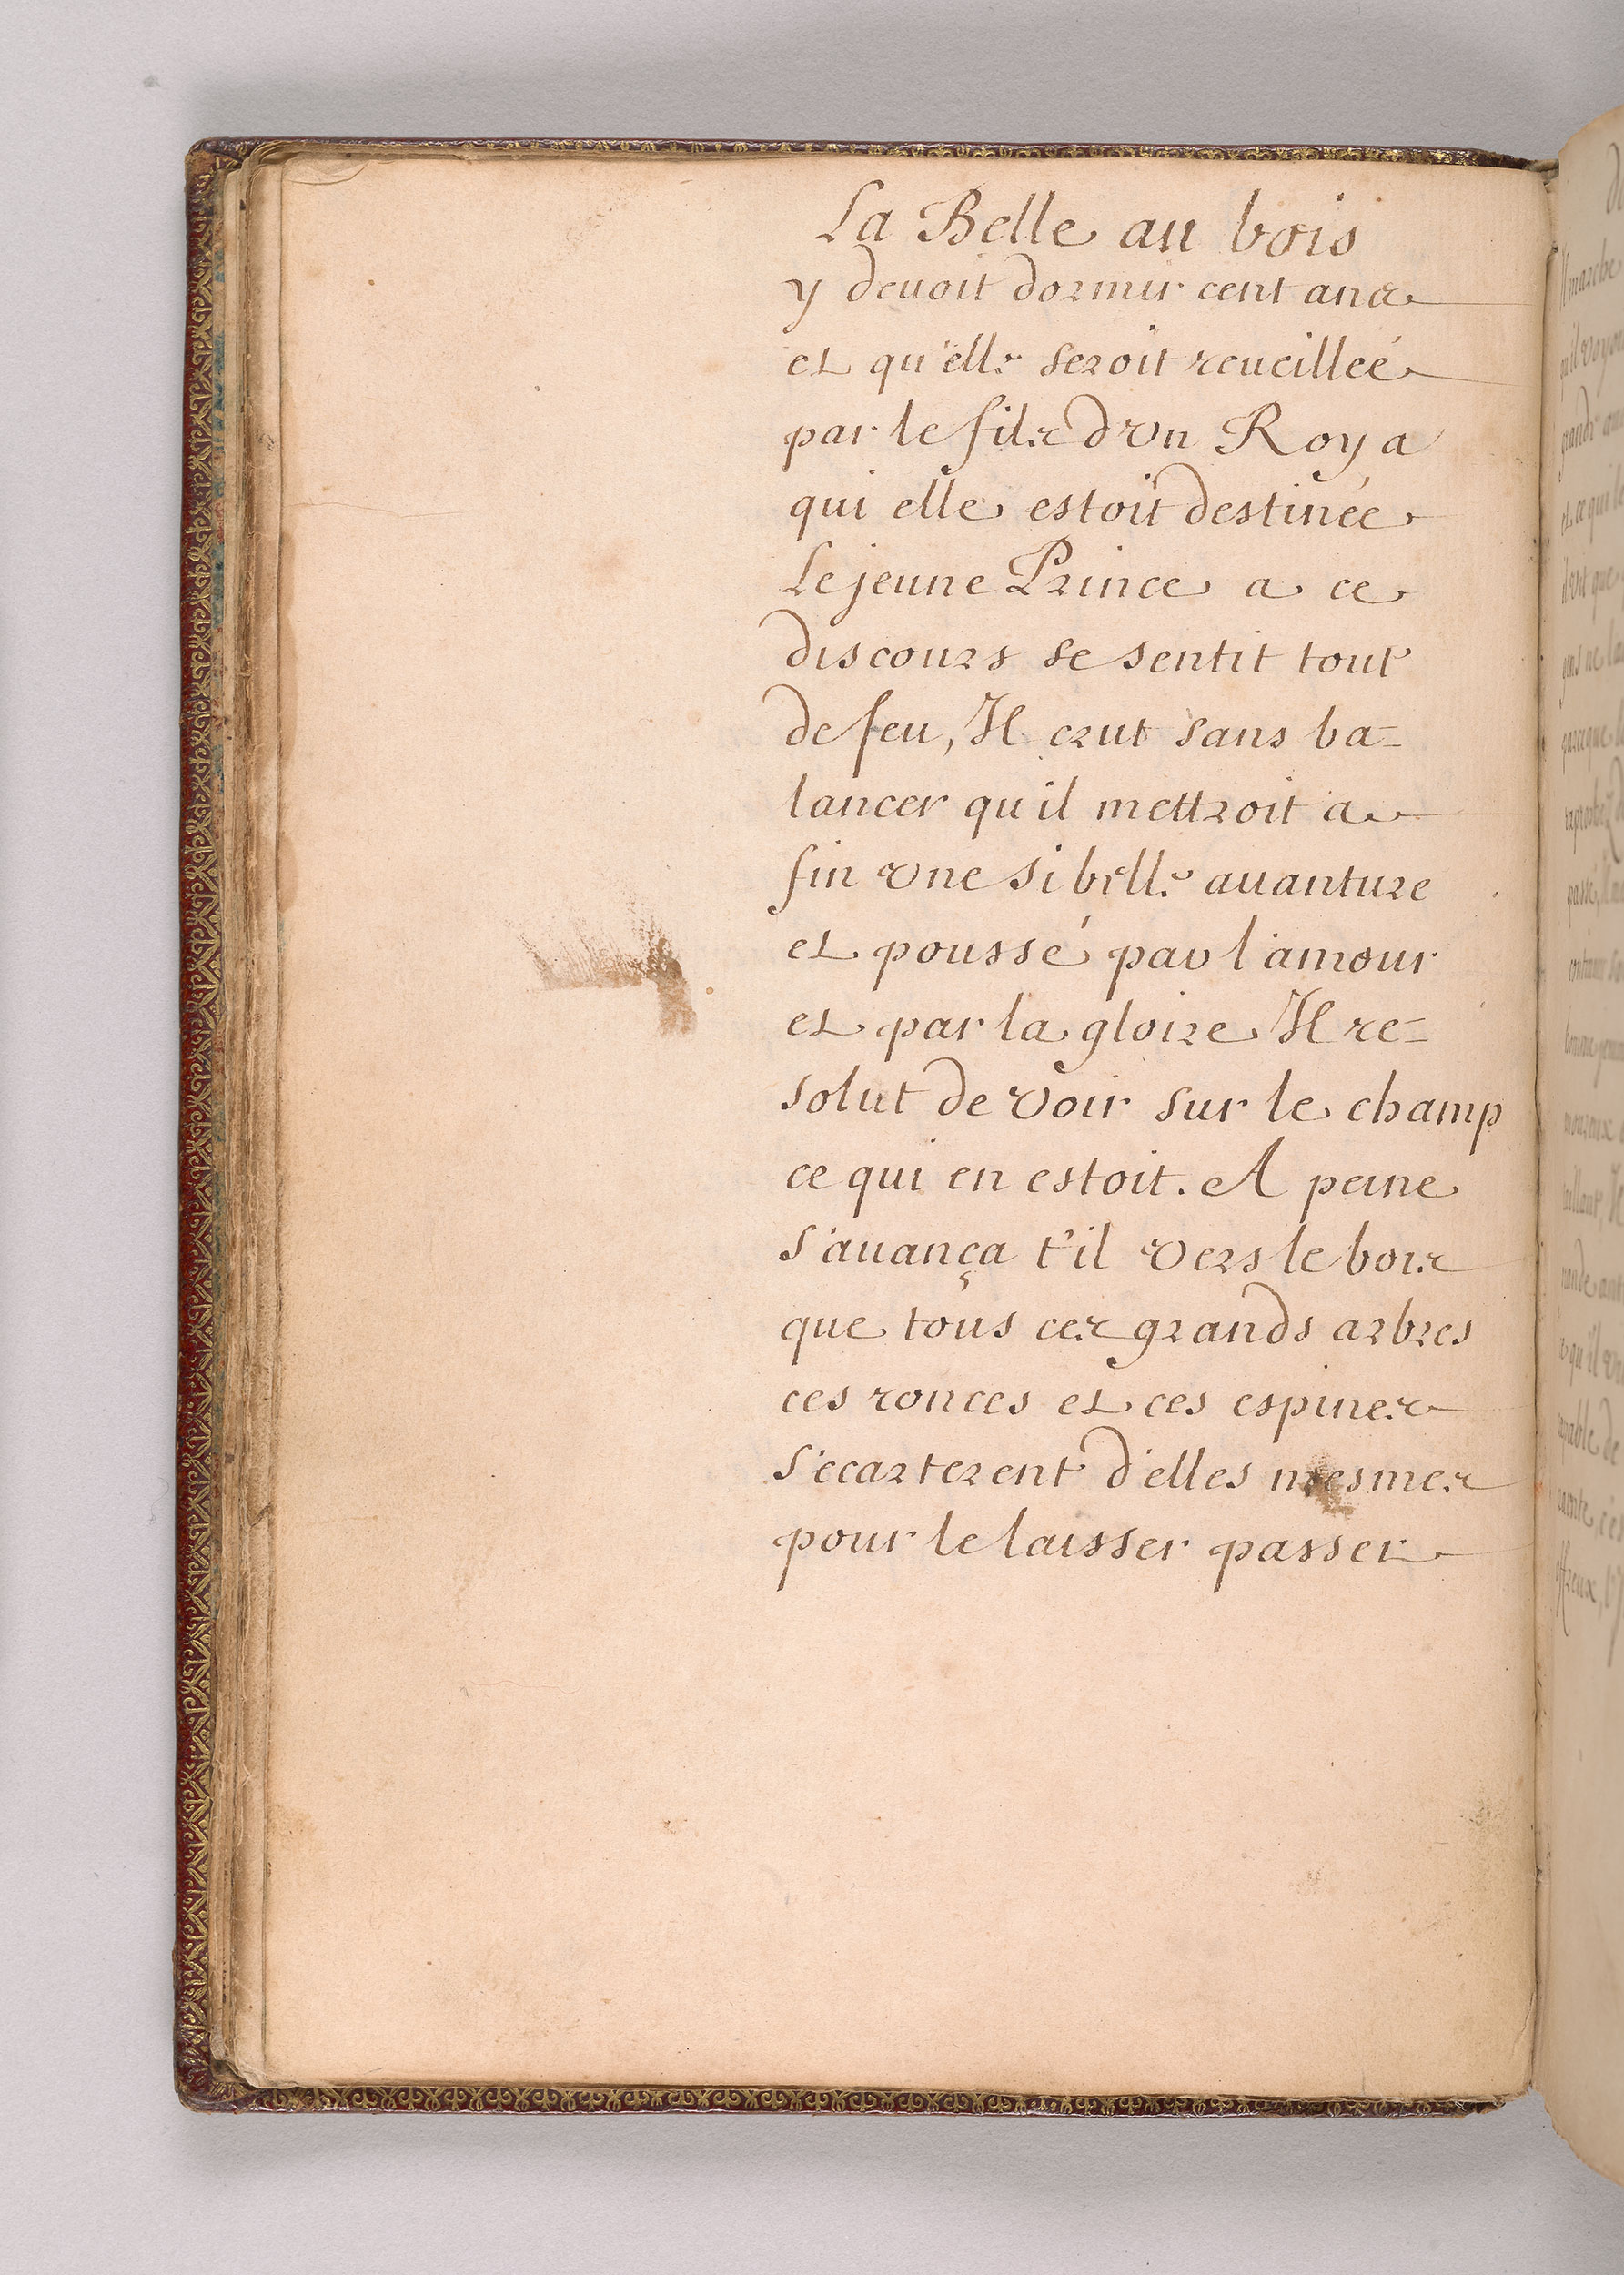 La Belle au bois
y deuoit dormir cent ans
et qu'elle seroit reueilleé
par le fils d'vn Roy a
qui elle estoit destinée
Le jeune Prince a ce
discours se sentit tout
de feu, Il crut sans ba=
lancer qu'il mettroit a
fin vne si belle auanture
et poussé par l'amour
et par la gloire Il re=
solut de voir sur le champ
ce qui en estoit. A peine
s'auança t'il vers le bois
que tous ces grands arbres
ces ronces et ces espines
s'ecarterent d'elles mesmes
pour le laisser passer